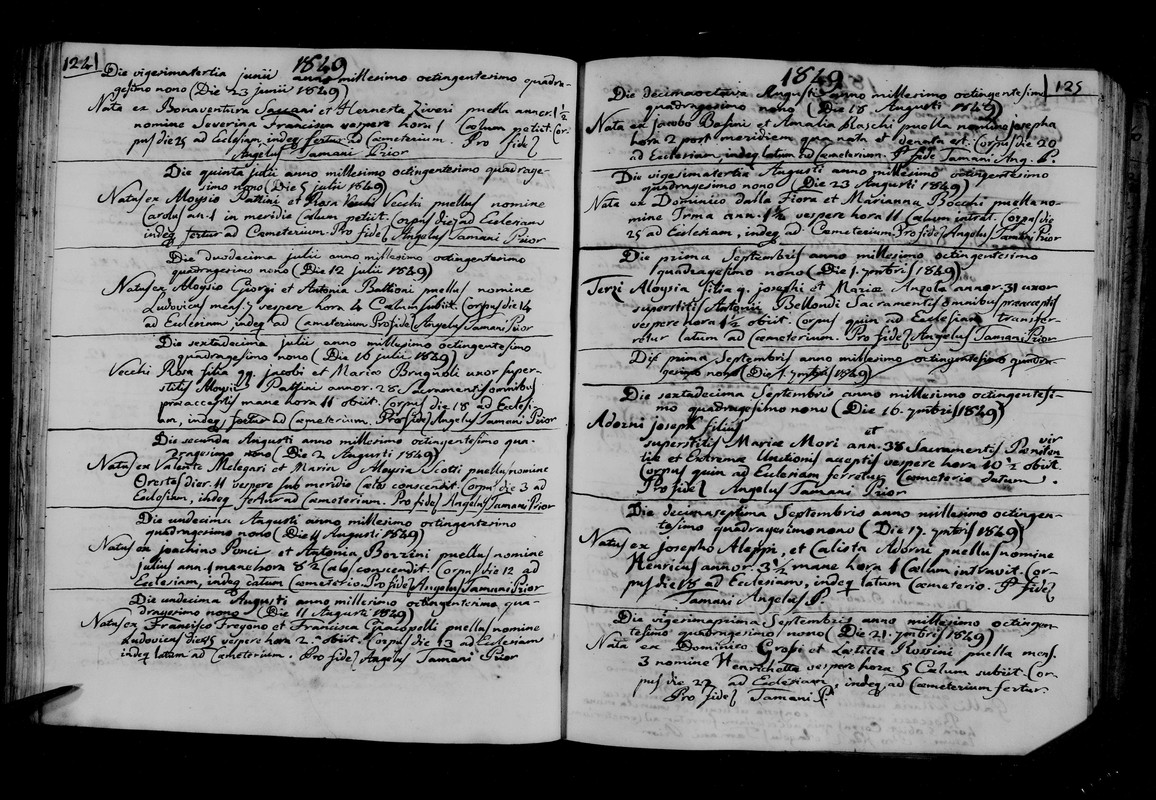 124
1849
Die vigesimatertia junii anno millesimo octingentesimo quadra-
gesimo nono (Die 23 junii 1849)
Nata ex Bonaventura et Ernesta Ziveri puella annor. 1 1/2
nomine Severina Francisca vespere hora 1 Cælum petiit. Cor-
pus die 25 ad Eclesiam, indeq fertur ad Cæmeterium. Pro fide
Angelus Tamani Prior
Die quinta julii anno millesimo octingentesimo quadrage-
simo nono (Die 5 julii 1849)
Natus ex Aloysio Pattini et Rosa Vecchi puellus nomine
Carolus an. 1 in meridia Cælum petiit. Corpus die ad Ecclesiam
indeq fertur ad Cæmeterium. Pro fide Angelus Tamani Prior
Die duodecima julii anno millesimo octingentesimo
quadragesimo nono (Die 12 julii 1849)
Natus ex Aloysio Giorgi et Antonia Battioni puellus nomine
Ludovicus mens. 7 vespere hora 4 Cælum subiit. Corpus die 14
ad Eclesiam indeq ad Cæmeterium Pro fide Angelus Tamani Prior
Die sextadecima julii anno millesimo octingentesimo
quadragesimo nono (Die 16 julii 1849)
Vecchi Rosa filia qq. jacobi et Maria Brugnoli uxor super-
stitis Aloysii Pattini annor. 28 Sacramentis omnibus
præacceptis mane hora 11 obiit. Corpus die 18 ad Ecclesi-
am, indeq fertur ad Cæmeterium. Pro fide Angelus Tamani Prior
Die secunda Augusti anno millesimo octingentesimo qua-
dragesimo nono (Die 2 Augusti 1849)
Natus ex Valente Melegari et Maria Aloysia Scotti puellus nomine
Orestes dier. 11 vespere sub meridie Cælos conscendit. Corpus die 3 ad
Eclesiam, indeq fertur ad Cæmeterium. Pro fide Angelus Tamani Prior
Die undecima Augusti anno millesimo octingentesimo
quadragesimo nono (Die 11 Augusti 1849)
Natus ex joachino Ponci et Antonia Bozzini puellus nomine
julius ann. 1 mane hora 8 1/2 Cælos conscendit. Corpus die 12 ad
Ecclesiam, indeq datum Cæmeterio. Pro fide Angelus Tamani Prior
Die undecima Augusti anno millesimo octingentesimo qua-
dragesimo nono (Die 11 Augusti 1849)
Natus ex Francisco Fregono et Francisca puellus nomine
Ludovicus vespere hora 2. obiit. Corpus die 13 ad Ecclesiam
indeq latum ad Cæmeterium. Pro fide Angelus Tamani Prior
1849
125
Die decimaoctava Augusti anno millesimo octingentesimo
quadragesimo nono (Die 18 Augusti 1849)
Nata ex Jacobo Basini et Amalia Maschi puella nomine josepha
hora 2 post meridiem qua nata et denata est. Corpus die 20
ad Ecclesiam, indeq latum ad Cæmeterium. P. fide Tamani Ang. P.
Die vigesimatertia Augusti anno millesimo octingentesimo
quadragesimo nono (Die 23 Augusti 1849)
Nata ex Dominico dalla Fiora et Marianna Bocchi puella no-
mine Irma ann. 1 1/2 vespere hora 11 Cælum intrat. Corpus die
25 ad Eclesiam, indeq ad Cæmeterium. Pro fide Angelus Tamani Prior
Die prima Septembris anno millesimo octingentesimo
quadragesimo nono (Die 1. 7mbris 1849)
Terzi Aloysia filia q. josephi et Mariæ Angola annor. 31 uxor
superstitis Antonii Bellondi Sacramentis omnibus præacceptis
vespere hora 1 1/2 obiit. Corpus quin ad Ecclesiam transfer-
retur latum ad Cæmeterium. Pro fide Angelus Tamani Prior
Die prima Septembris anno millesimo octingentesimo quadra-
gesimo nono (Die 1. 7mbris 1849)
Die sextadecima Septembris anno millesimo octingentesi-
mo quadragesimo nono (Die 16. 7mbris 1849)
Adorni joseph filius et vir
superstitis Mariæ Mori ann. 38 Sacramentis Pœniten-
tiæ et Extremæ Unctionis aceptis vespere hora 10 1/2 obiit.
Corpus quin ad Ecclesiam ferretur Cæmeterio datum.
Pro fide Angelus Tamani Prior
Die decimaseptima Septembris anno millesimo octingen-
tesimo quadragesimonono (Die 17. 7mbris 1849)
Natus ex josepho Aleppi, et Calista Adorni puellus nomine
Henricus annor. 3 1/2 mane hora 1 Cælum intravit. Cor-
pus die 18 ad Ecclesiam, indeq latum Cæmeterio. P fide
Tamani Angelus P.
Die vigesimaprima Septembris anno millesimo octingen-
tesimo quadragesimo nono (Die 21. 7mbris 1849)
Nata ex Dominico Gropi et Lætitia Rossini puella mens.
3 nomine Henrichetta vespere hora 5 Cælum subiit. Cor-
pus die 22 ad Eclesiam indeq ad Cæmeterium fertur.
Pro fide Tamani P.